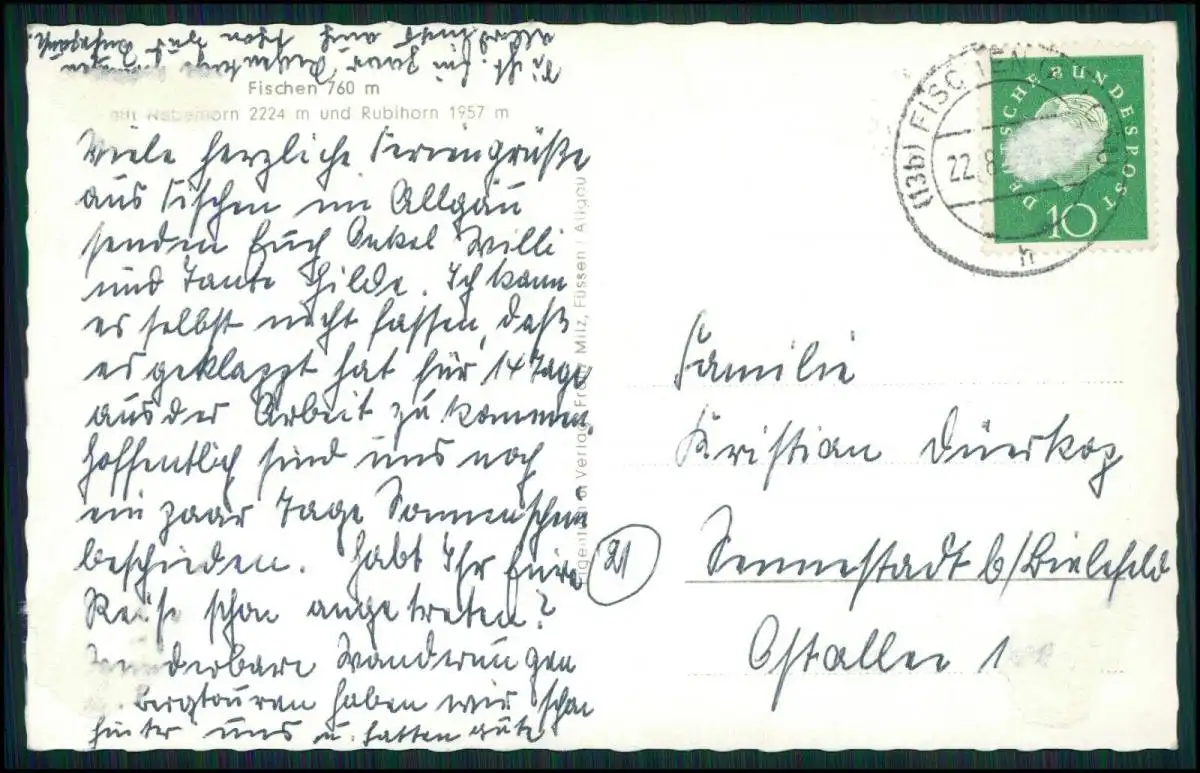 Fischen 760 m
mit Nebelhorn 2224 m und Rubihorn 1957 m
Viele herzliche Feriengrüße
aus Fischen im Allgäu
senden Euch Onkel Willi
und Tante Hilde. Ich kann
es selbst nicht fassen, daß
es geklappt hat für 14 Tage
aus der Arbeit zu kommen.
Hoffentlich sind uns noch
ein paar Tage Sonnenschein
beschieden. Habt Ihr Eure
Reise schon angetreten?
Wunderbare Wanderungen
u. Bergtouren haben wir schon
hinter uns u. hatten gute
Sicht. Ein paar Regentage
allerdings auch schon
Eigentum Verlag Franz Milz, Füssen / Allgäu
(13b) FISCHEN
22.8
h
DEUTSCHE BUNDESPOST
10
Familie
Kristian Düerkop
(21) Sennestadt b/Bielefeld
Ostallee 1